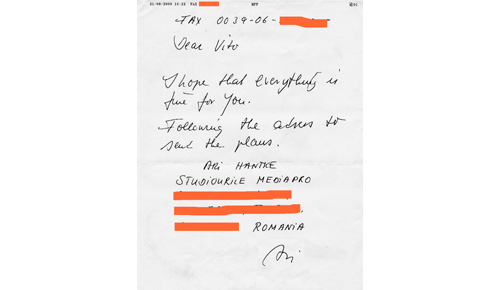 21/08/2000 10:22 FAX
MPP
01
FAX 0039-06-
Dear Vito
I hope that everything is
fine for You.
Following the adress to
sent the plans.
ARI HANTKE
STUDIOURILE MEDIAPRO
ROMANIA
Ari